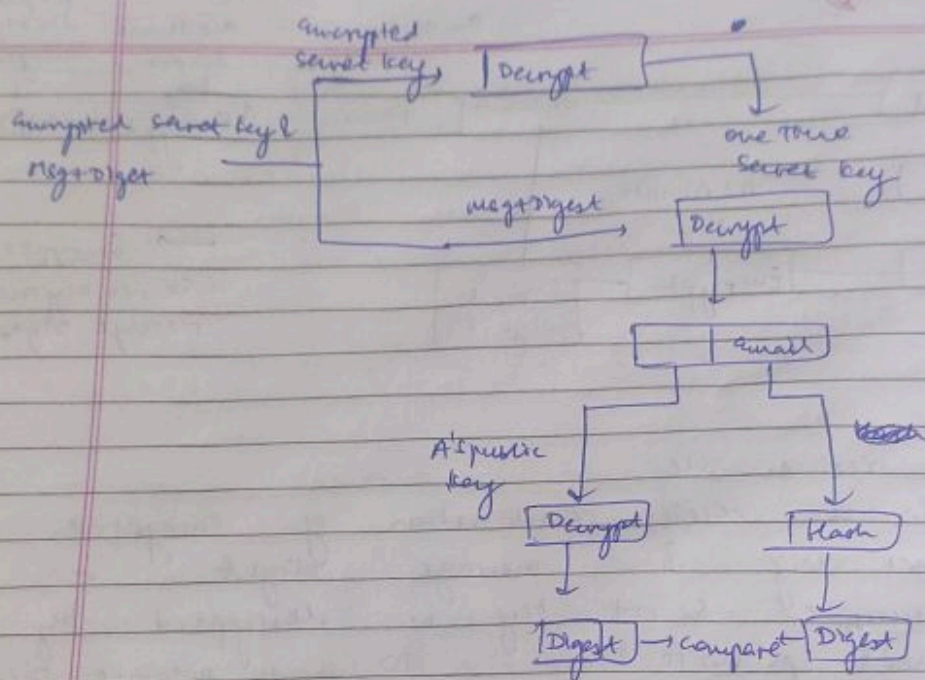 encrypted
secret key
Decrypt
encrypted secret key &
Msg+Diget
one Time
secret key
Msg+Digest
Decrypt
email
A's public
key
Decrypt
Hash
Digest → compare ← Digest